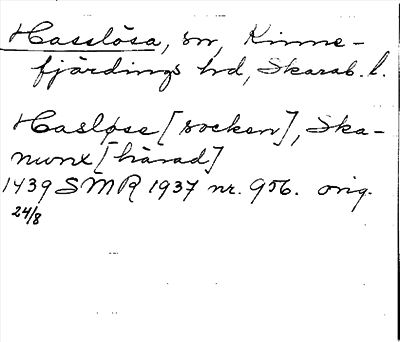 Hasslösa, sn, Kinne-
fjärdings hd, Skarab. l.
Hasløse [socken], Ska-
nwnx [härad]
1439 SMR 1937 nr. 956. orig.
24/8